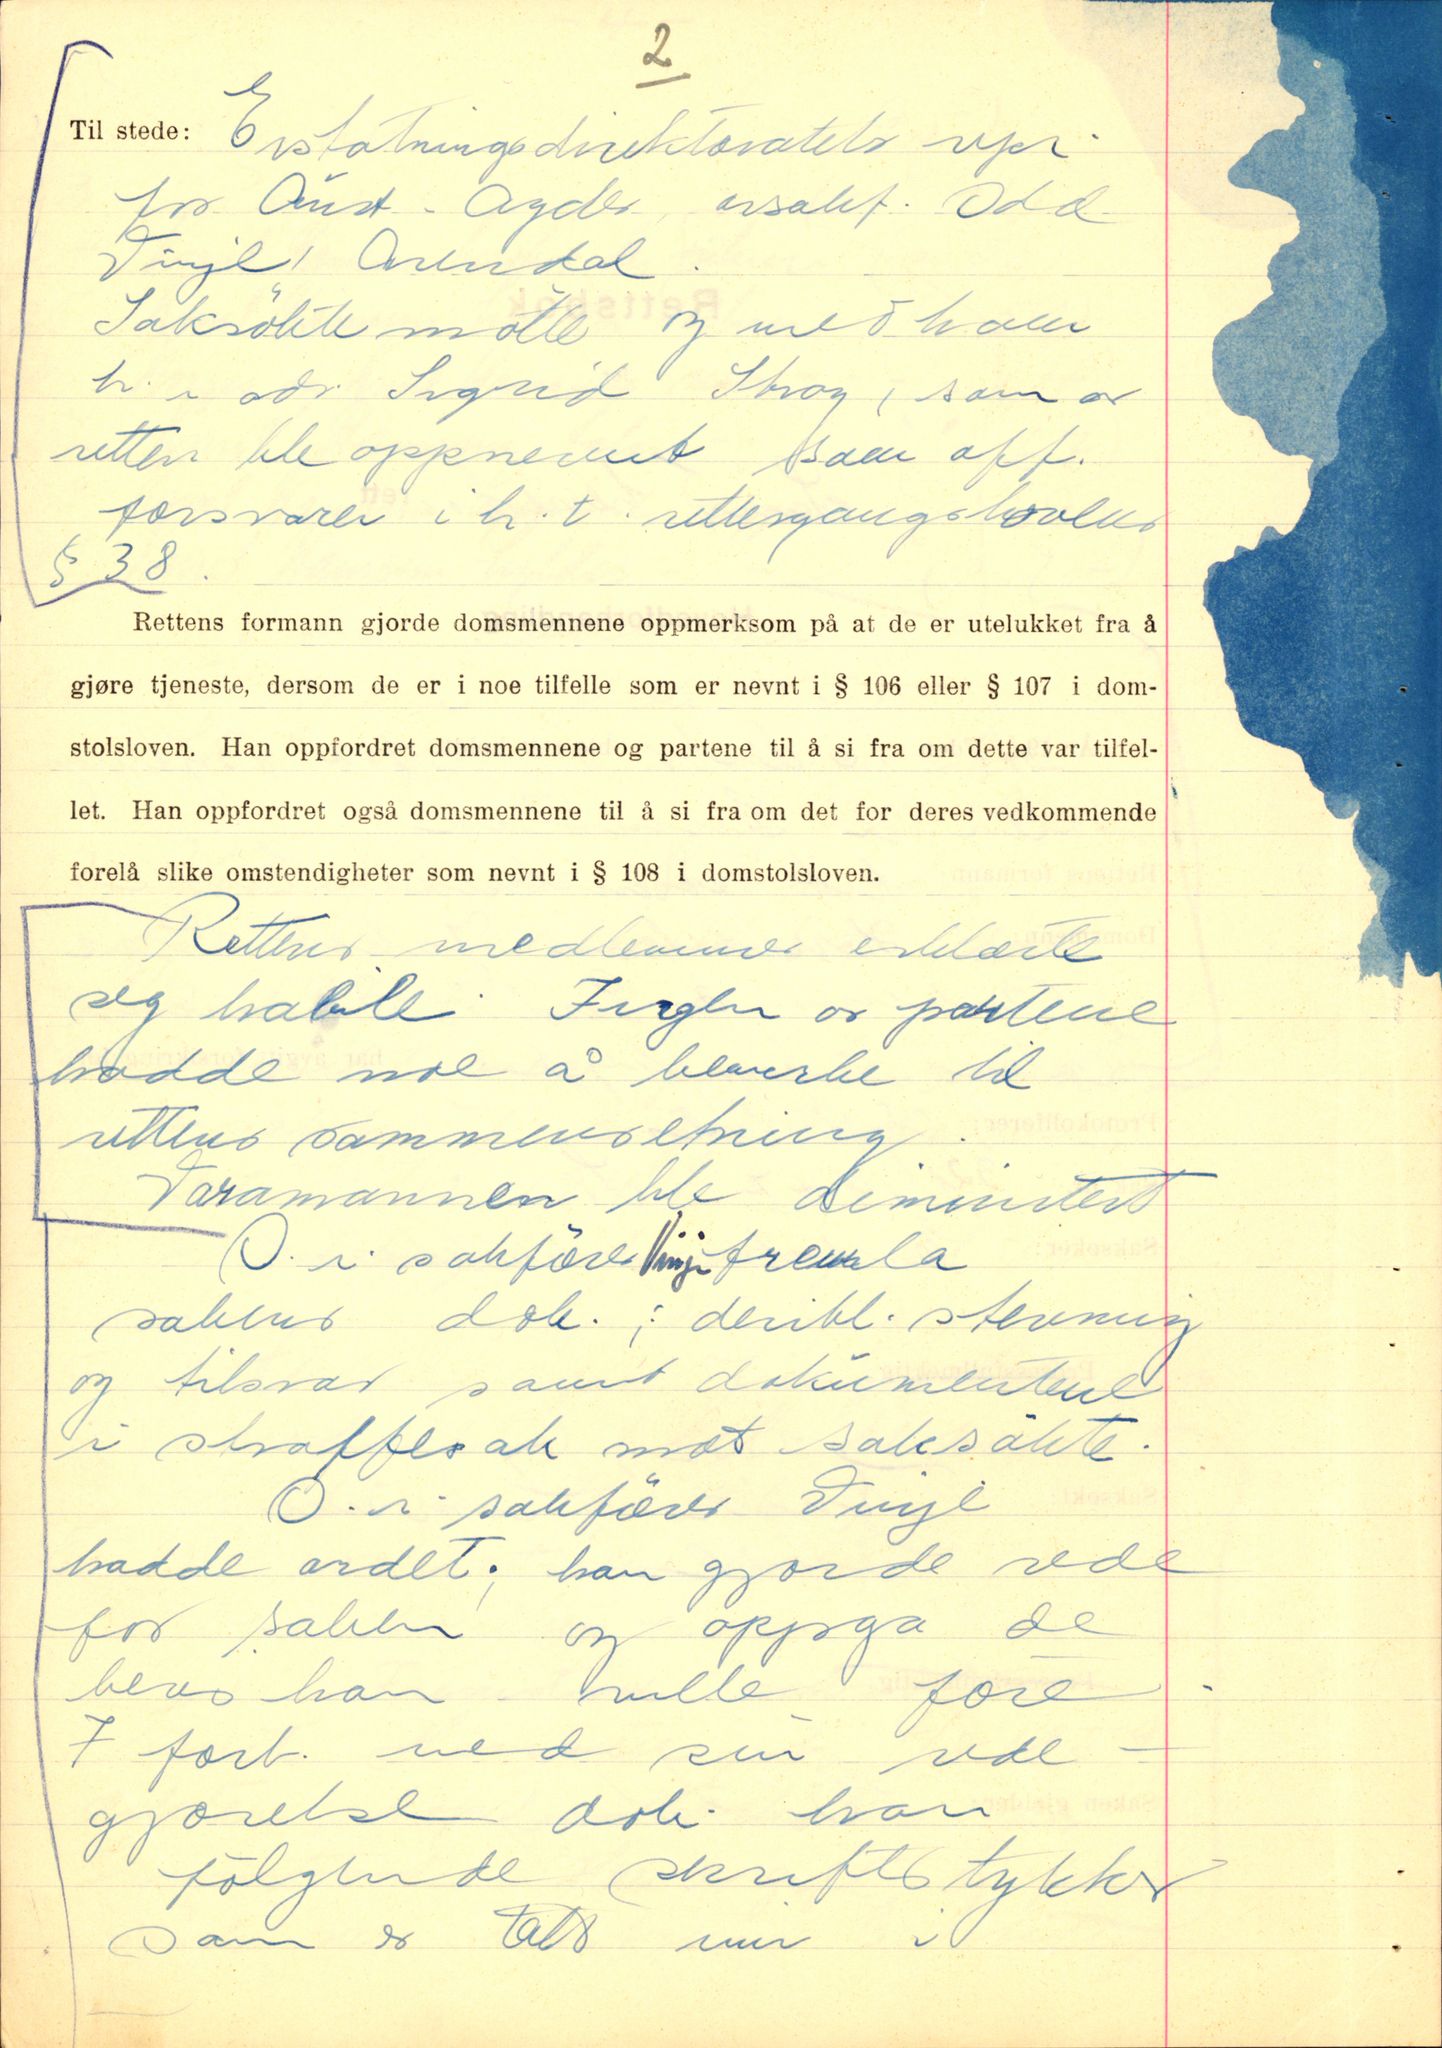 2
Til stede: Erstatningsdirektoratets repr.
for Aust-Agder, orsakf. Odd
Vinje, Arendal.
Saksøkte møtte og med ham
h.r.adv. Sigrid Stray, som av
retten ble oppnevnt som off.
forsvarer i h.t. rettergangslovens
§ 38.
Rettens formann gjorde domsmennene oppmerksom på at de er utelukket fra å
gjøre tjeneste, dersom de er i noe tilfelle som er nevnt i § 106 eller § 107 i dom-
stolsloven. Han oppfordret domsmennene og partene til å si fra om dette var tilfel-
let. Han oppfordret også domsmennene til å si fra om det for deres vedkommende
forelå slike omstendigheter som nevnt i § 108 i domstolsloven.
Rettens medlemmer erklærte
seg habile. Ingen av partene
hadde noe å bemerke til
rettens sammensetning.
Varamannen ble dimittert
O.r.sakfører Vinje fremla
sakens dok.; deribl. stevning
og tilsvar samt dokumentene
i straffesak mot saksøkte.
O.r.sakfører Vinje
hadde ordet; han gjorde rede
for saken og oppga de
bevis han ville føre.
I forb. med sin rede-
gjørelse dok. han
følgende skriftstykker
som er tatt inn i